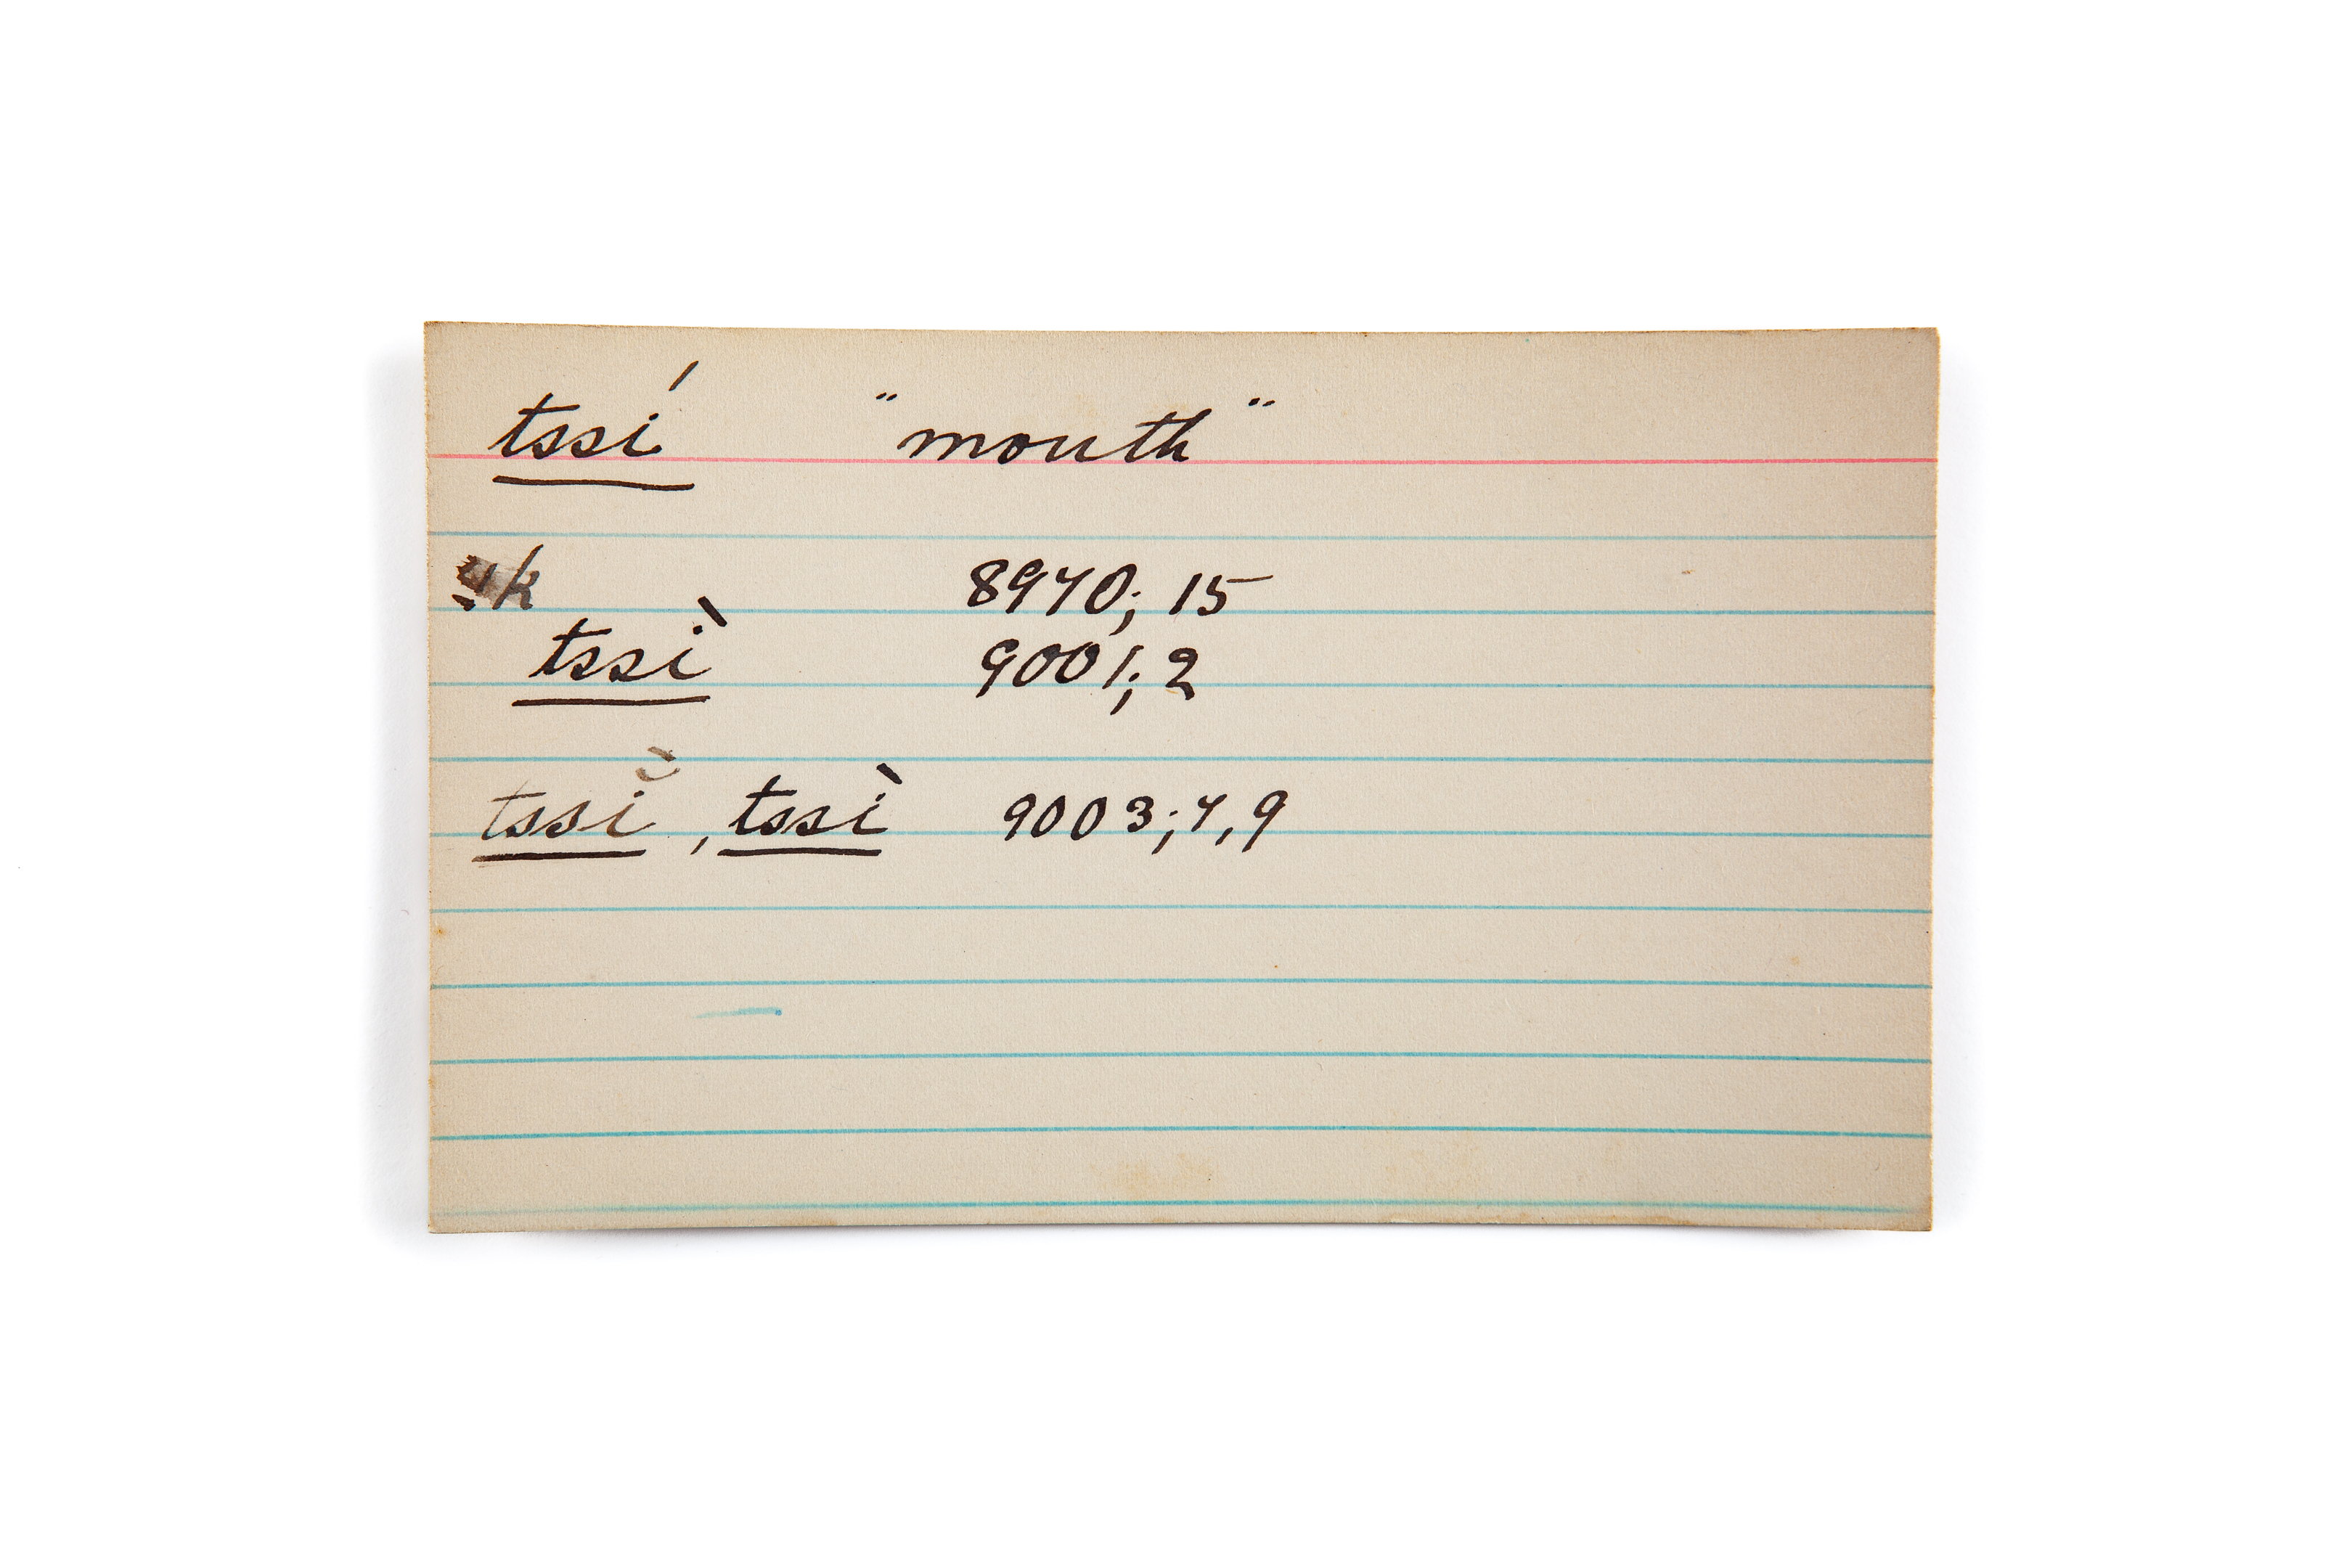 tssí "mouth"
8970; 15
tssì 9001; 2
tssì, tssì 9003; 7, 9